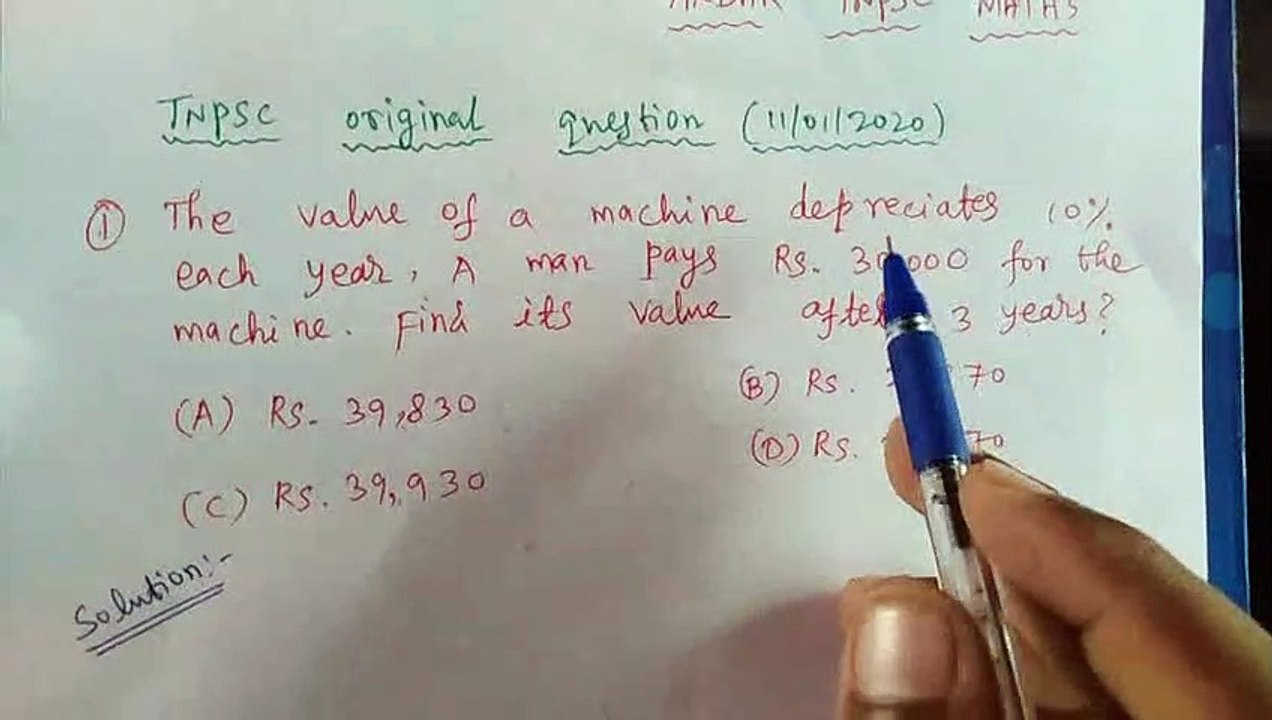 TNPSC MATHS
TNPSC original question (11/01/2020)
① The value of a machine depreciates 10%
each year, A man pays Rs. 30,000 for the
machine. Find its value after 3 years?
(A) Rs. 39,830
(B) Rs. 70
(C) Rs. 39,930
(D) Rs. 70
Solution:-